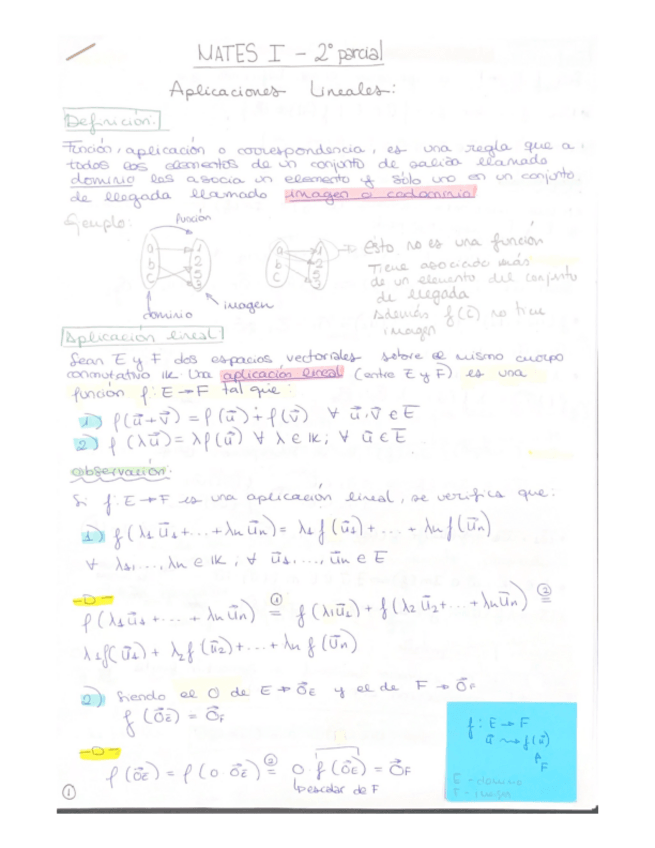 MATES I - 2º parcial
Aplicaciones Lineales:
Definición:
Función, aplicación o correspondencia, es una regla que a
todos los elementos de un conjunto de salida llamado
dominio les asocia un elemento y sólo uno en un conjunto
de llegada llamado imagen o codominio
Ejemplo:
función
a
b
c
1
2
3
a
b
c
1
2
3
esto no es una función
Tiene asociado más
de un elemento del conjunto
de llegada
Además f(c) no tiene
imagen
dominio
imagen
Aplicación lineal
Sean E y F dos espacios vectoriales sobre el mismo cuerpo
conmutativo IK. Una aplicación lineal (entre E y F) es una
función f: E → F tal que:
1) f(u⃗+v⃗) = f(u⃗) + f(v⃗) ∀ u⃗,v⃗ ∈ E
2) f(λu⃗) = λf(u⃗) ∀ λ ∈ IK; ∀ u⃗ ∈ E
observación:
Si f: E → F es una aplicación lineal, se verifica que:
1) f(λ₁u⃗₁+...+λnu⃗n) = λ₁f(u⃗₁)+...+λnf(u⃗n)
∀ λ₁,...,λn ∈ IK; ∀ u⃗₁,...,u⃗n ∈ E
-D-
f(λ₁u⃗₁+...+λnu⃗n) =① f(λ₁u⃗₁)+f(λ₂u⃗₂+...+λnu⃗n) =②
λ₁f(u⃗₁)+λ₂f(u⃗₂)+...+λnf(u⃗n)
2) Siendo el 0 de E → 0⃗E y el de F → 0⃗F
f(0⃗E) = 0⃗F
-D-
f(0⃗E) = f(0 0⃗E) =② 0 f(0⃗E) = 0⃗F
escalar de F
f: E → F
u⃗ ⇝ f(u⃗)
F
E - dominio
F - imagen
①